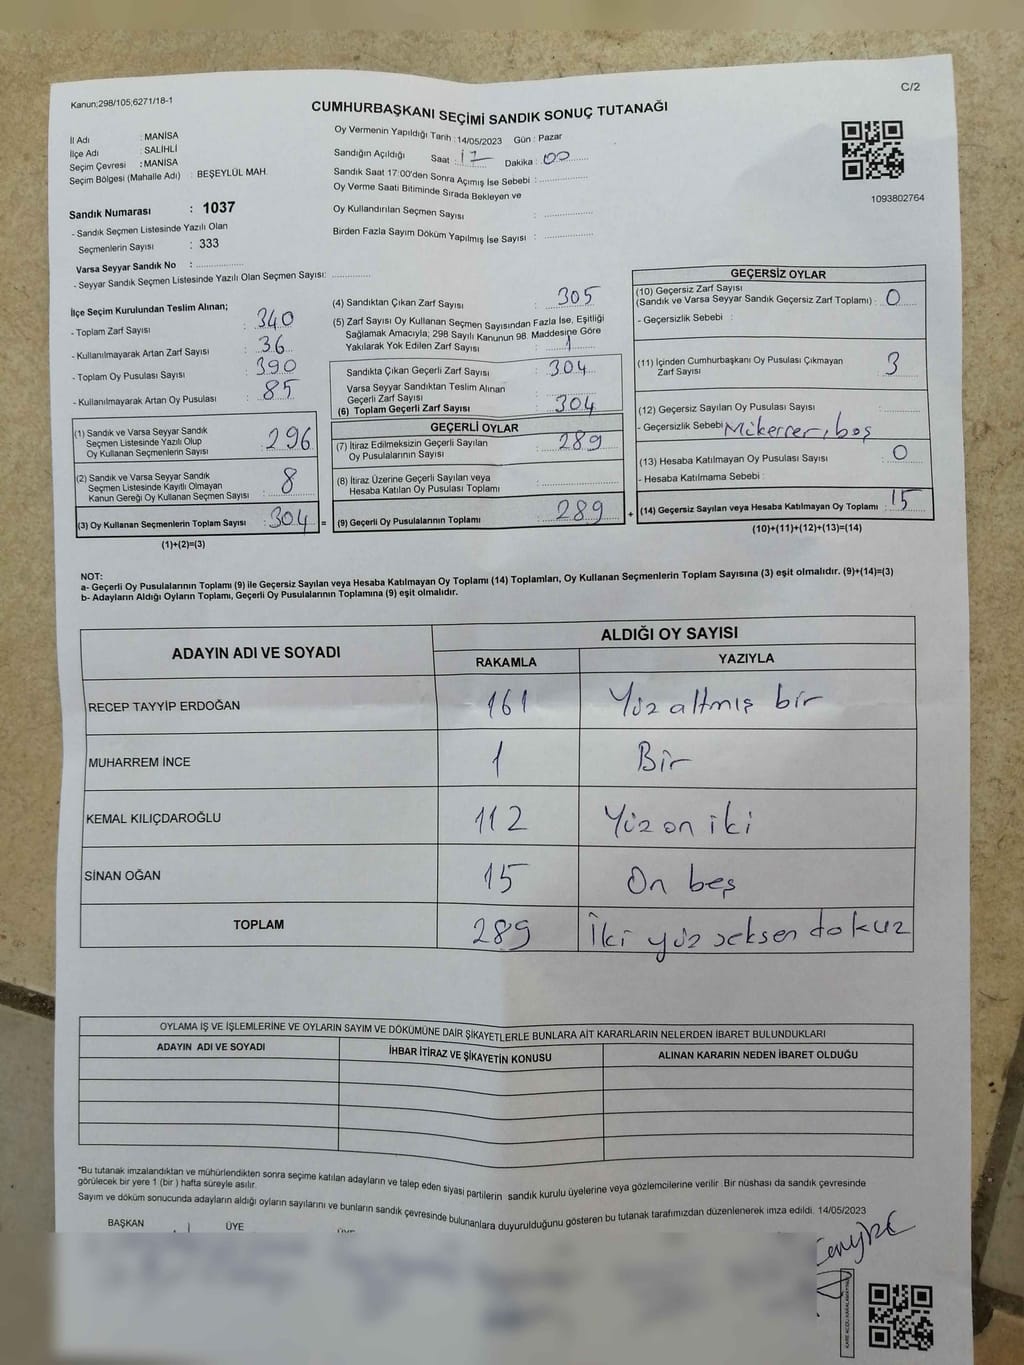 Kanun;298/105;6271/18-1
C/2
CUMHURBAŞKANI SEÇİMİ SANDIK SONUÇ TUTANAĞI
İl Adı : MANİSA
İlçe Adı : SALİHLİ
Seçim Çevresi : MANİSA
Seçim Bölgesi (Mahalle Adı) : BEŞEYLÜL MAH.
Oy Vermenin Yapıldığı Tarih : 14/05/2023 Gün : Pazar
Sandığın Açıldığı Saat : 17 Dakika : 00
Sandık Saat 17:00'den Sonra Açımış İse Sebebi :
Oy Verme Saati Bitiminde Sırada Bekleyen ve
Oy Kullandırılan Seçmen Sayısı :
Birden Fazla Sayım Döküm Yapılmış İse Sayısı :
1093802764
Sandık Numarası : 1037
- Sandık Seçmen Listesinde Yazılı Olan
Seçmenlerin Sayısı : 333
Varsa Seyyar Sandık No :
- Seyyar Sandık Seçmen Listesinde Yazılı Olan Seçmen Sayısı:
İlçe Seçim Kurulundan Teslim Alınan;
- Toplam Zarf Sayısı : 340
- Kullanılmayarak Artan Zarf Sayısı : 36
- Toplam Oy Pusulası Sayısı : 390
- Kullanılmayarak Artan Oy Pusulası : 85
(1) Sandık ve Varsa Seyyar Sandık
Seçmen Listesinde Yazılı Olup
Oy Kullanan Seçmenlerin Sayısı : 296
(2) Sandık ve Varsa Seyyar Sandık
Seçmen Listesinde Kayıtlı Olmayan
Kanun Gereği Oy Kullanan Seçmen Sayısı : 8
(3) Oy Kullanan Seçmenlerin Toplam Sayısı : 304 =
(1)+(2)=(3)
(4) Sandıktan Çıkan Zarf Sayısı : 305
(5) Zarf Sayısı Oy Kullanan Seçmen Sayısından Fazla İse, Eşitliği
Sağlamak Amacıyla; 298 Sayılı Kanunun 98. Maddesine Göre
Yakılarak Yok Edilen Zarf Sayısı : 1
Sandıkta Çıkan Geçerli Zarf Sayısı : 304
Varsa Seyyar Sandıktan Teslim Alınan
Geçerli Zarf Sayısı :
(6) Toplam Geçerli Zarf Sayısı : 304
GEÇERLİ OYLAR
(7) İtiraz Edilmeksizin Geçerli Sayılan
Oy Pusulalarının Sayısı : 289
(8) İtiraz Üzerine Geçerli Sayılan veya
Hesaba Katılan Oy Pusulası Toplamı :
(9) Geçerli Oy Pusulalarının Toplamı : 289 +
GEÇERSİZ OYLAR
(10) Geçersiz Zarf Sayısı
(Sandık ve Varsa Seyyar Sandık Geçersiz Zarf Toplamı) : 0
- Geçersizlik Sebebi :
(11) İçinden Cumhurbaşkanı Oy Pusulası Çıkmayan
Zarf Sayısı : 3
(12) Geçersiz Sayılan Oy Pusulası Sayısı :
- Geçersizlik Sebebi Mükerrer, boş
(13) Hesaba Katılmayan Oy Pusulası Sayısı : 0
- Hesaba Katılmama Sebebi :
(14) Geçersiz Sayılan veya Hesaba Katılmayan Oy Toplamı : 15
(10)+(11)+(12)+(13)=(14)
NOT:
a- Geçerli Oy Pusulalarının Toplamı (9) ile Geçersiz Sayılan veya Hesaba Katılmayan Oy Toplamı (14) Toplamları, Oy Kullanan Seçmenlerin Toplam Sayısına (3) eşit olmalıdır. (9)+(14)=(3)
b- Adayların Aldığı Oyların Toplamı, Geçerli Oy Pusulalarının Toplamına (9) eşit olmalıdır.
ADAYIN ADI VE SOYADI ALDIĞI OY SAYISI
RAKAMLA YAZIYLA
RECEP TAYYİP ERDOĞAN 161 Yüz altmış bir
MUHARREM İNCE 1 Bir
KEMAL KILIÇDAROĞLU 112 Yüz on iki
SİNAN OĞAN 15 On beş
TOPLAM 289 İki yüz seksen dokuz
OYLAMA İŞ VE İŞLEMLERİNE VE OYLARIN SAYIM VE DÖKÜMÜNE DAİR ŞİKAYETLERLE BUNLARA AİT KARARLARIN NELERDEN İBARET BULUNDUKLARI
ADAYIN ADI VE SOYADI İHBAR İTİRAZ VE ŞİKAYETİN KONUSU ALINAN KARARIN NEDEN İBARET OLDUĞU
*Bu tutanak imzalandıktan ve mühürlendikten sonra seçime katılan adayların ve talep eden siyasi partilerin sandık kurulu üyelerine veya gözlemcilerine verilir. Bir nüshası da sandık çevresinde
görülecek bir yere 1 (bir) hafta süreyle asılır.
Sayım ve döküm sonucunda adayların aldığı oyların sayılarını ve bunların sandık çevresinde bulunanlara duyurulduğunu gösteren bu tutanak tarafımızdan düzenlenerek imza edildi. 14/05/2023
BAŞKAN ÜYE